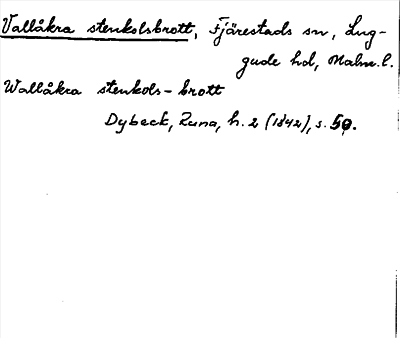 Vallåkra stenkolsbrott, Fjärestads sn, Lug-
gude hd, Malm. l.
Wallåkra stenkols-brott
Dybeck, Runa, h. 2 (1842), s. 50.